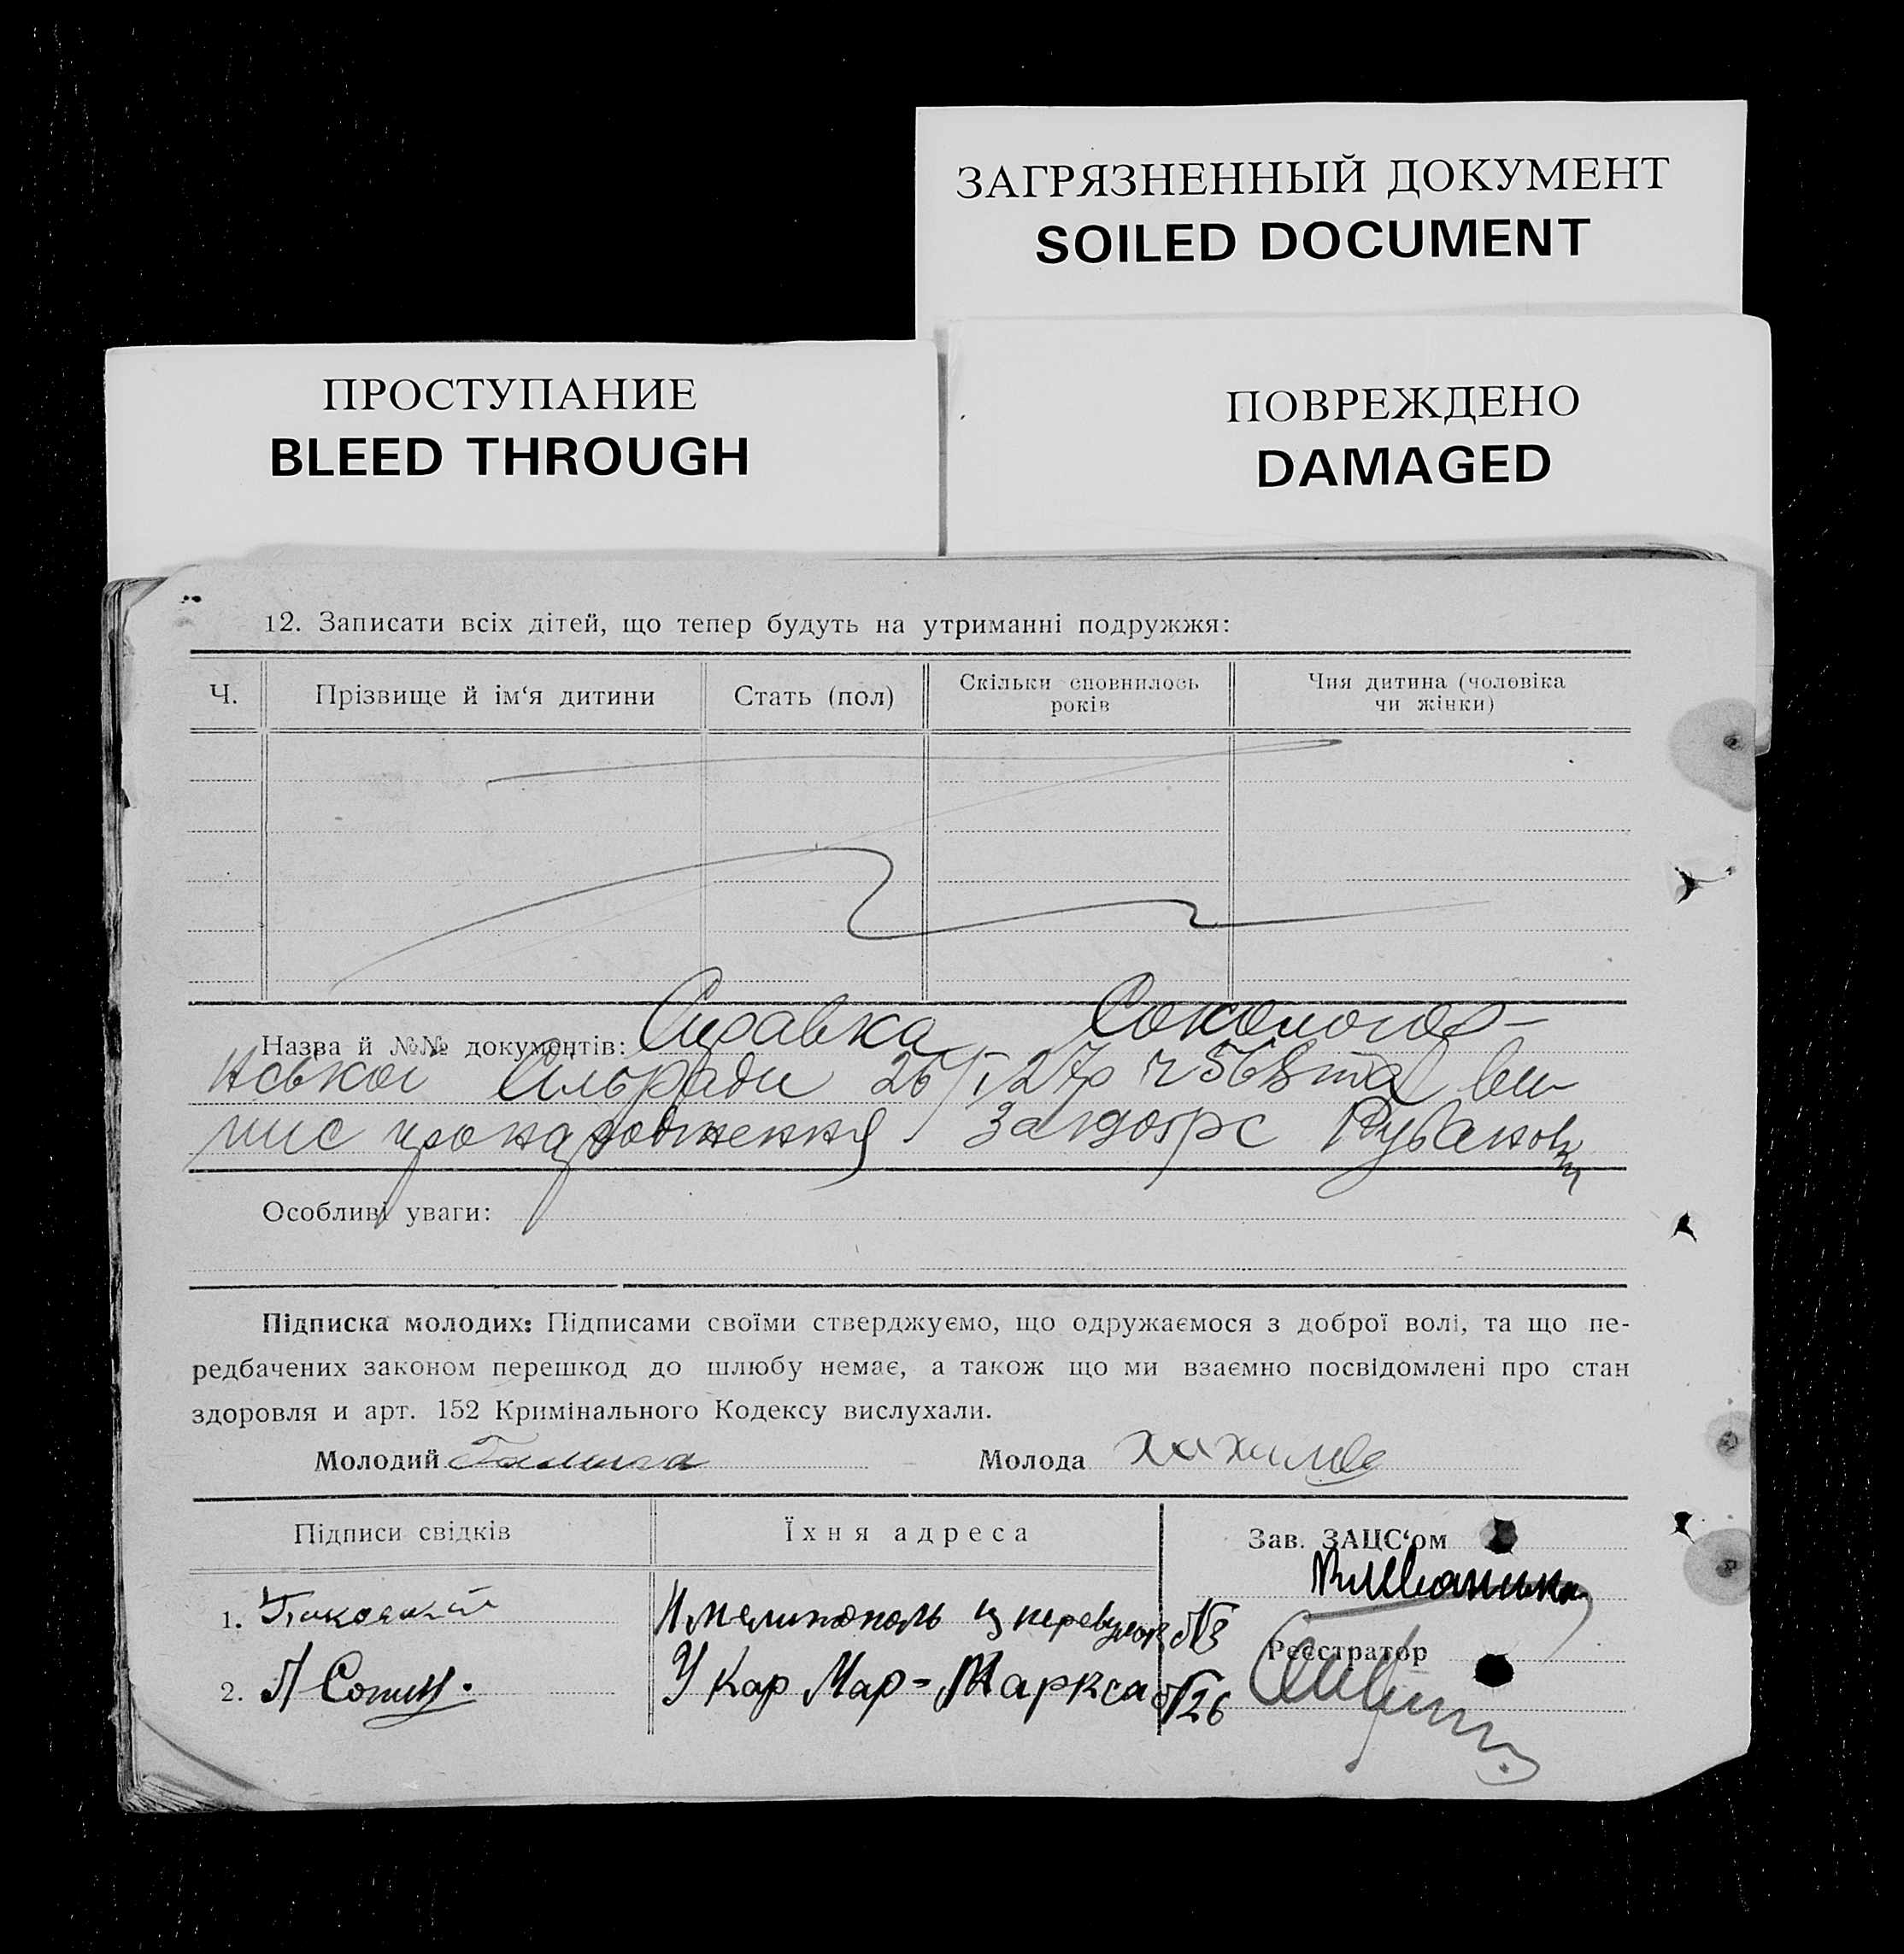 ЗАГРЯЗНЕННЫЙ ДОКУМЕНТ
SOILED DOCUMENT
ПРОСТУПАНИЕ
BLEED THROUGH
ПОВРЕЖДЕНО
DAMAGED
12. Записати всіх дітей, що тепер будуть на утриманні подружжя:
Ч.
Прізвище й ім‘я дитини
Стать (пол)
Скільки сповнилось
років
Чия дитина (чоловіка
чи жінки)
Назва й №№ документів: Справка
нської Сільради 26/I 27р ч 568 та ви
пис про народження
Особливі уваги:
Підписка молодих: Підписами своїми стверджуємо, що одружаємося з доброї волі, та що пе-
редбачених законом перешкод до шлюбу немає, а також що ми взаємно посвідомлені про стан
здоровля и арт. 152 Кримінального Кодексу вислухали.
Молодий
Молода
Підписи свідків
Їхня адреса
Зав. ЗАЦС‘ом
1.
2.
Маркса №26
Реєстратор